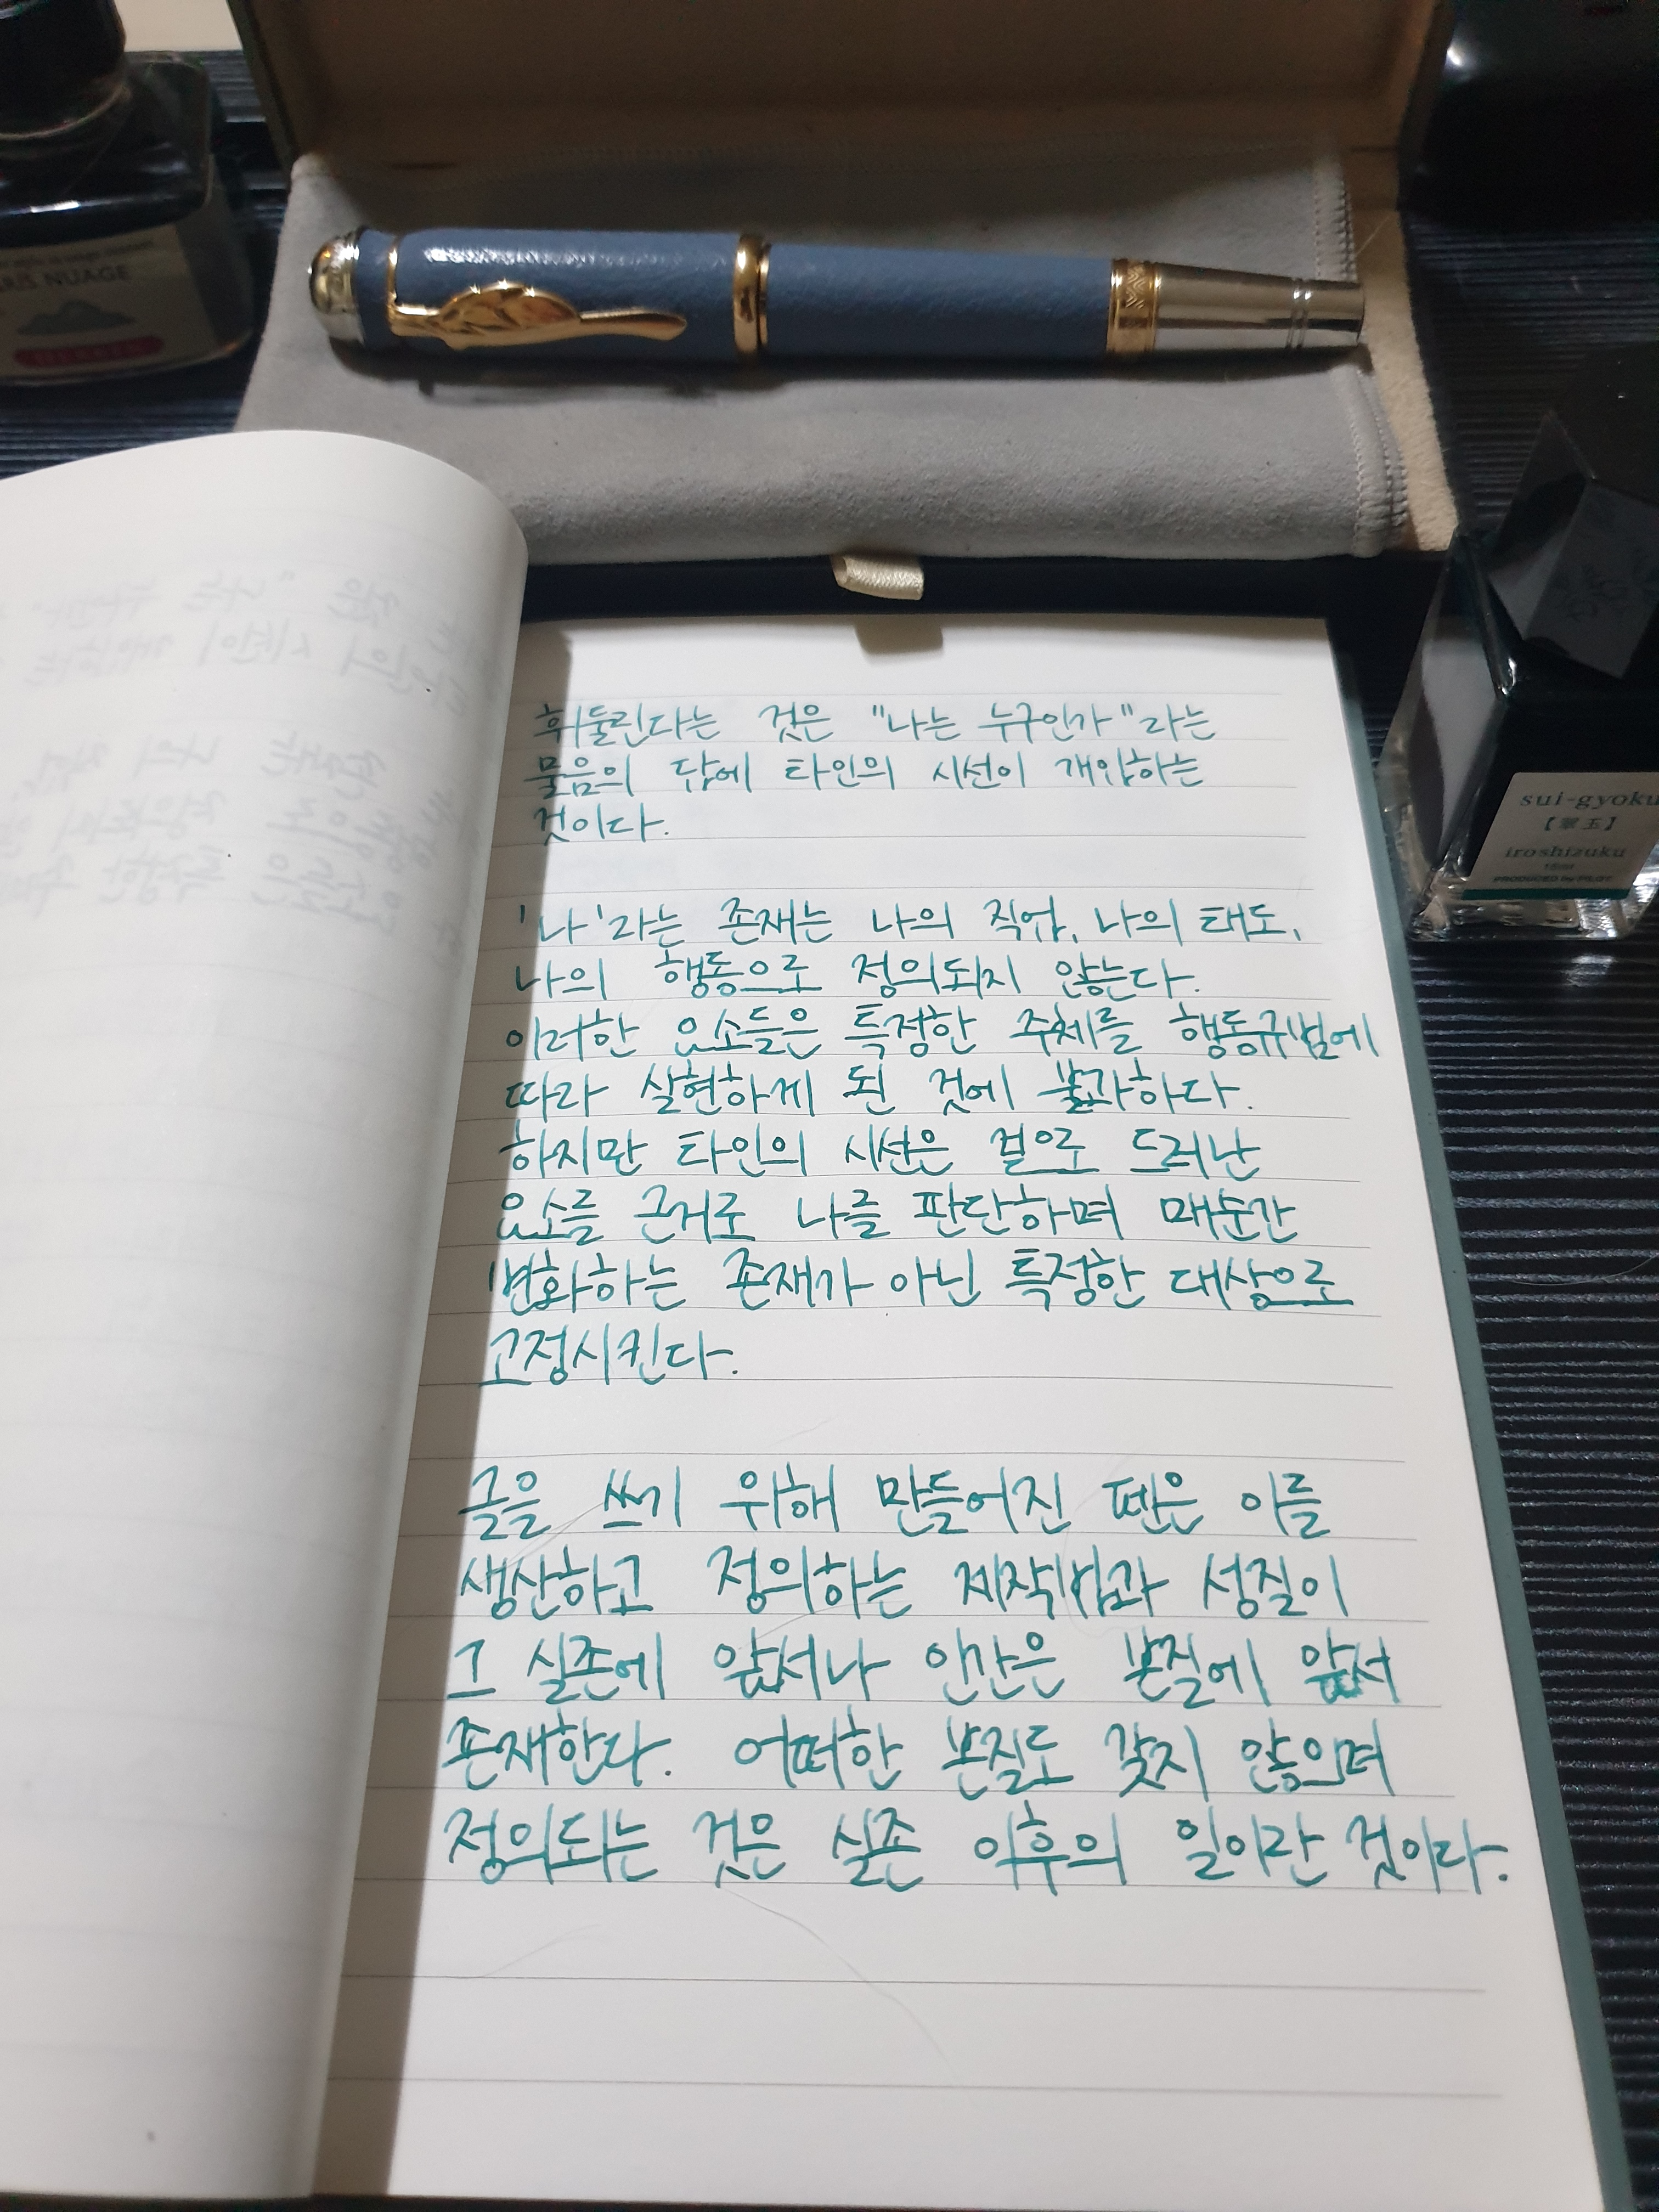 RIS NUAGE
HERBIN
휘둘린다는 것은 "나는 누구인가"라는
물음의 답에 타인의 시선이 개입하는
것이다.
'나'라는 존재는 나의 직업, 나의 태도,
나의 행동으로 정의되지 않는다.
이러한 요소들은 특정한 주체를 행동규범에
따라 실현하게 된 것에 불과하다.
하지만 타인의 시선은 겉으로 드러난
요소를 근거로 나를 판단하며 매순간
변화하는 존재가 아닌 특정한 대상으로
고정시킨다.
글을 쓰기 위해 만들어진 펜은 이를
생산하고 정의하는 제작법과 성질이
그 실존에 앞서나 인간은 본질에 앞서
존재한다. 어떠한 본질도 갖지 않으며
정의되는 것은 실존 이후의 일이란 것이다.
sui-gyoku
【翠玉】
iroshizuku
15ml
PRODUCED by PILOT